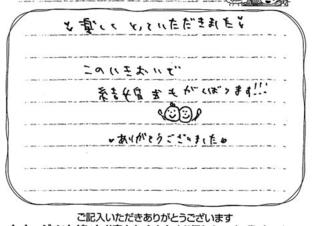 ♪楽しく とっていただきました♪
このいきおいで
結婚式もがんばります!!!
♥ありがとうございました♥
ご記入いただきありがとうございます